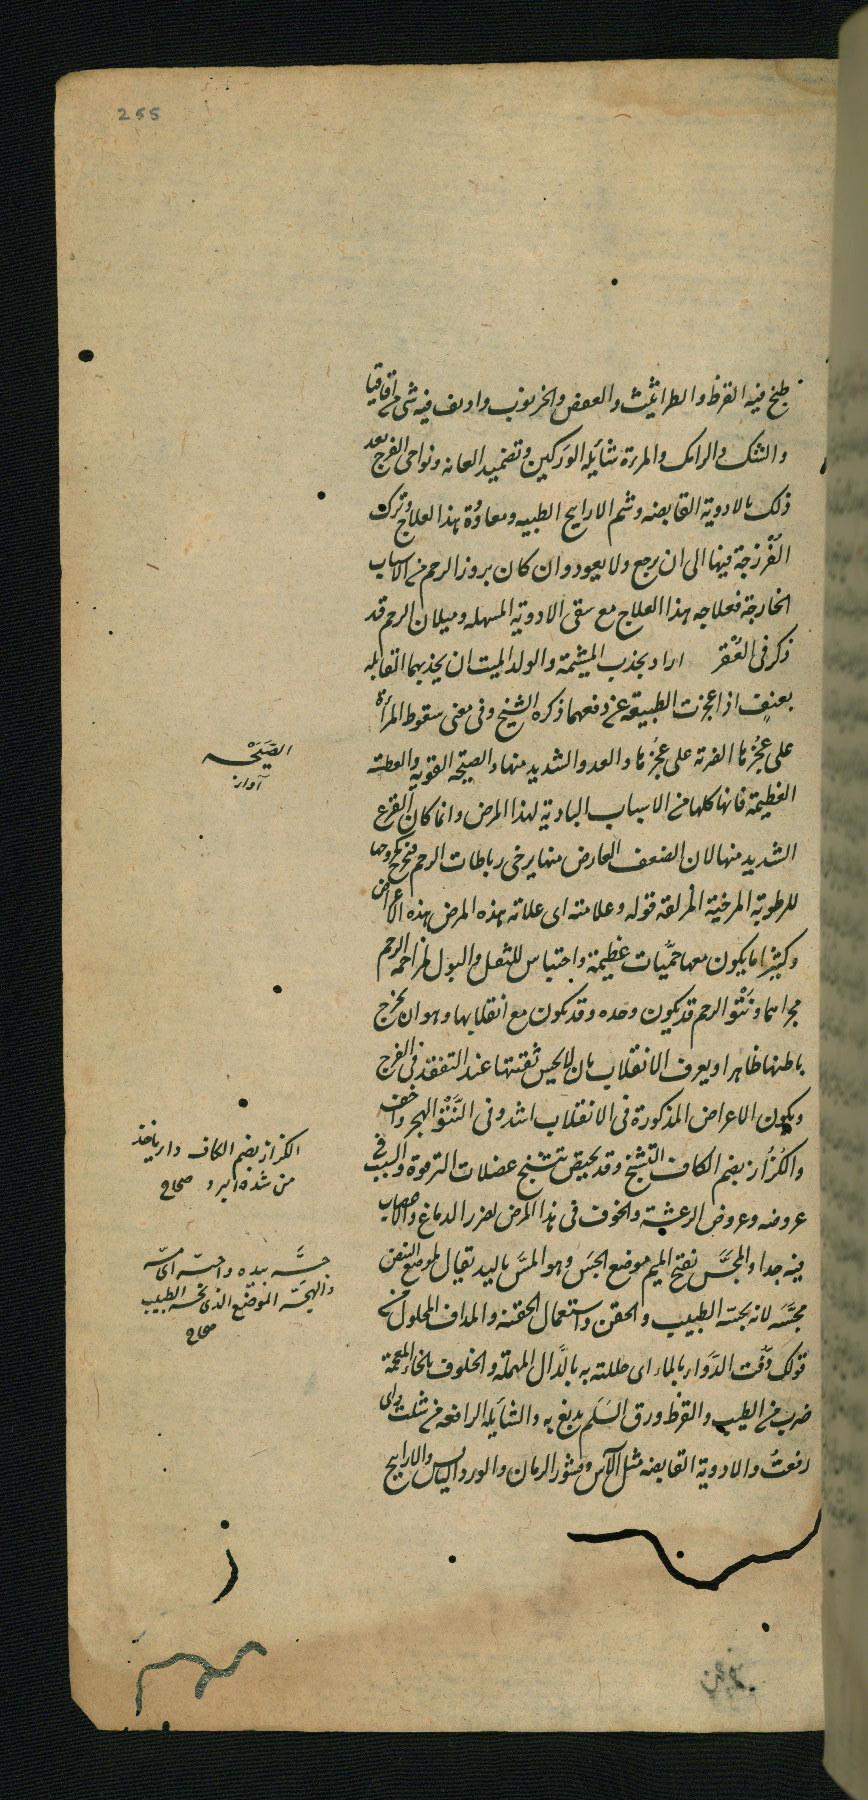 255
طبخ فيه القرظ والطراثيث والعفص والخرنوب واديف فيه شئ من اقاقيا
والسك والرامك والمرءة شائلة الوركين وتضميد العانه ونواحى الفرج بعد
ذلك بالادوية القابضه وشم الاراييح الطيبه ومعاودة هذا العلاج وترك
الفُرزجة فيها الى ان يرجع ولا يعود وان كان بروز الرحم من الاسباب
الخارجة فعلاجه هذا العلاج مع سقى الادوية المسهله وميلان الرحم قد
ذكر فى العُقر اراد بجذب المشيمة والولد الميت ان يجذبهما القابله
بعنفٍ اذا عجزت الطبيعة عن دفعهما ذكره الشيخ وفى معنى سقوط المرأة
على عجُزها الضربة على عجُزها والعدو الشديد منها والصيحة القوية والعطسة
العظيمة فانها كلها من الاسباب البادية لهذا المرض وانما كان الفزع
الشديد منها لان الضعف العارض منها يرخى رباطات الرحم
للرطوبة المرخية المزلقة قوله وعلامته اى علامة هذه المرض هذه الاعراض
وكثيرا ما يكون معها حميَّات عظيمة واحتباس للثفل والبول لمزاحمة الرحم
مجراهما ونُتْو الرحم قد يكون وحده وقد يكون مع انقلابها وهو ان يخرج
باطنها ظاهرا ويعرف الانقلاب بان لا يحس ثقبتها عند التفقد فى الفرج
ويكون الاعراض المذكورة فى الانقلاب اشد وفى النُتْو المجرد اخف
والكُزُاز بضم الكاف التشنج وقد يخص بتشنج عضلات الترقوة والسبب فى
عروضه وعروض الرعشة والخوف فى هذا المرض لضرر الدماغ والاعصاب
فيه جدا والمَجَسَّ بفتح الميم موضع الجَس وهو المسَّ باليد يقال لموضع النبض
مجَسَّه لانه يجسّه الطبيب والحقن واستعمال الحقنة والمداف المحلول من
قولك دُفْت الدَوَاء بالماء اى حللته به بالدَّال المهملة والخلوف بالخاء المعجمة
ضرب من الطيب والقرظ ورق السَلَم يدبغ به والشائلة الرافعة من شلت اى
رفعتُ والادوية القابضه مثل الآس وقشور الرمان والورد اليابس والاراييح
الصَيحَه
آواز
الكزاز بضم الكاف داء ياخذ
من شدة البرد صحاح
جسَّه بيده واجتسّه اى مسّه
والمجَسّه الموضع الذى يجسه الطبيب
صحاح